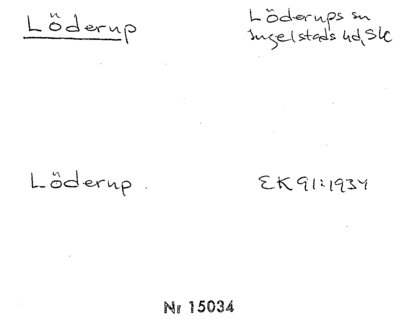 Löderup
Löderups sn
Ingelstads hd, Sk
Löderup.
EK 91:1934
Nr 15034